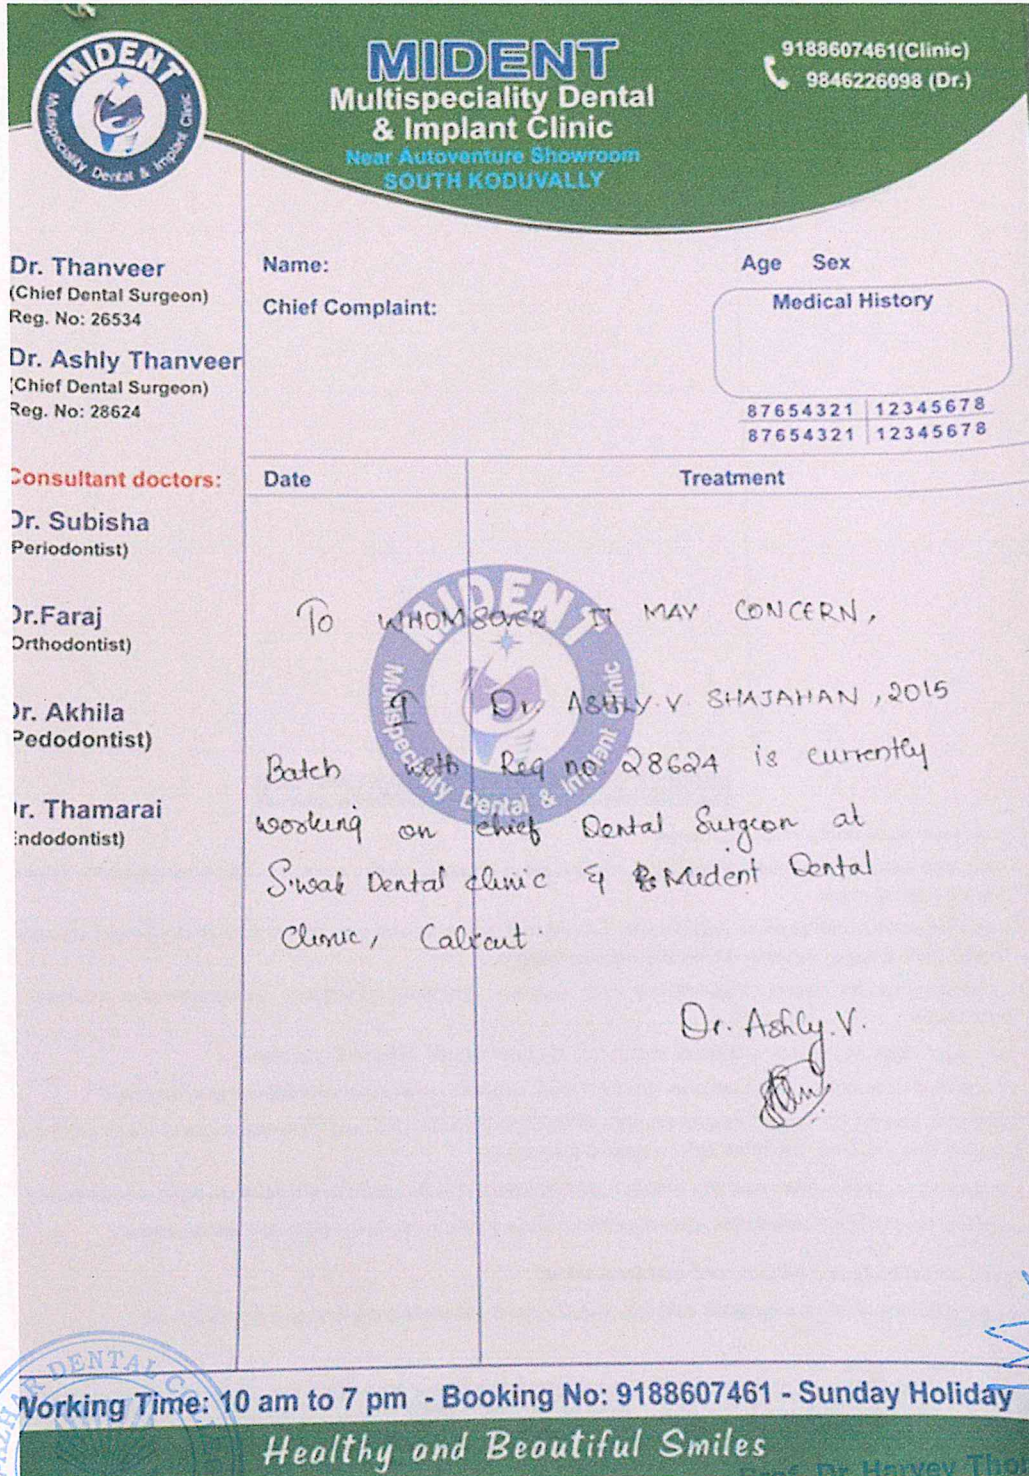 MIDENT
Multispeciality Dental & Implant Clinic
MIDENT
Multispeciality Dental
& Implant Clinic
Near Autoventure Showroom
SOUTH KODUVALLY
9188607461(Clinic)
9846226098 (Dr.)
Dr. Thanveer
(Chief Dental Surgeon)
Reg. No: 26534
Dr. Ashly Thanveer
(Chief Dental Surgeon)
Reg. No: 28624
Consultant doctors:
Dr. Subisha
(Periodontist)
Dr.Faraj
(Orthodontist)
Dr. Akhila
(Pedodontist)
Dr. Thamarai
(Endodontist)
Name:
Age Sex
Chief Complaint:
Medical History
87654321 12345678
87654321 12345678
Date Treatment
MIDENT
Multispeciality Dental & Implant Clinic
To WHOMSOVER IT MAY CONCERN,
I Dr. ASHLY.V. SHAJAHAN, 2015
Batch with Reg no 28624 is currently
working on chief Dental Surgeon at
Siwak Dental clinic & Mident Dental
Clinic, Calicut.
Dr. Ashly.V.
Working Time: 10 am to 7 pm - Booking No: 9188607461 - Sunday Holiday
Healthy and Beautiful Smiles
DENTAL
Prof. Dr Harvey Thom